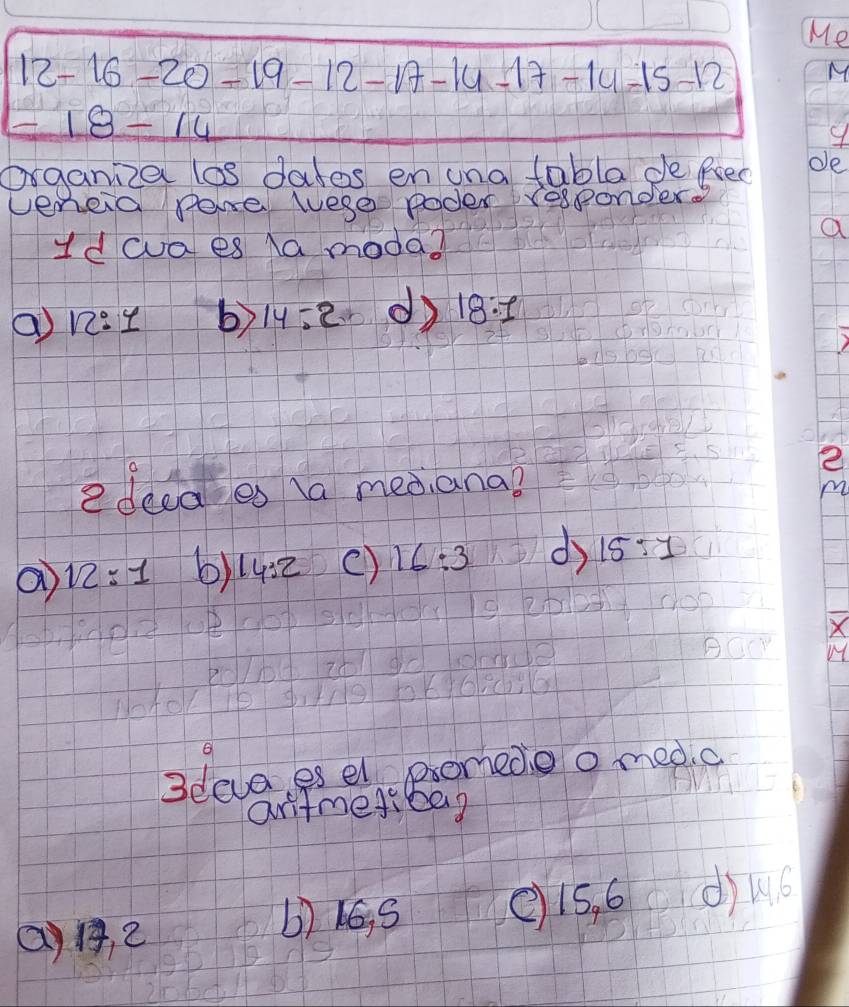 12-16-20-19-12-17-14-17-14-15-12
-18-14
organiza los datos en una tabla de frec
uencia para luego poder responder:
1¿cua es la moda?
a) 12:1 b) 14:2 d) 18:1
2¿cua es la mediana?
a) 12:1 b) 14:2 c) 16:3 d) 15:1
3¿cua es el promedio o media
aritmetica?
a) 17,2 b) 16,5 c) 15,6 d) 14,6
Me
M
de
a
2
m
X
M